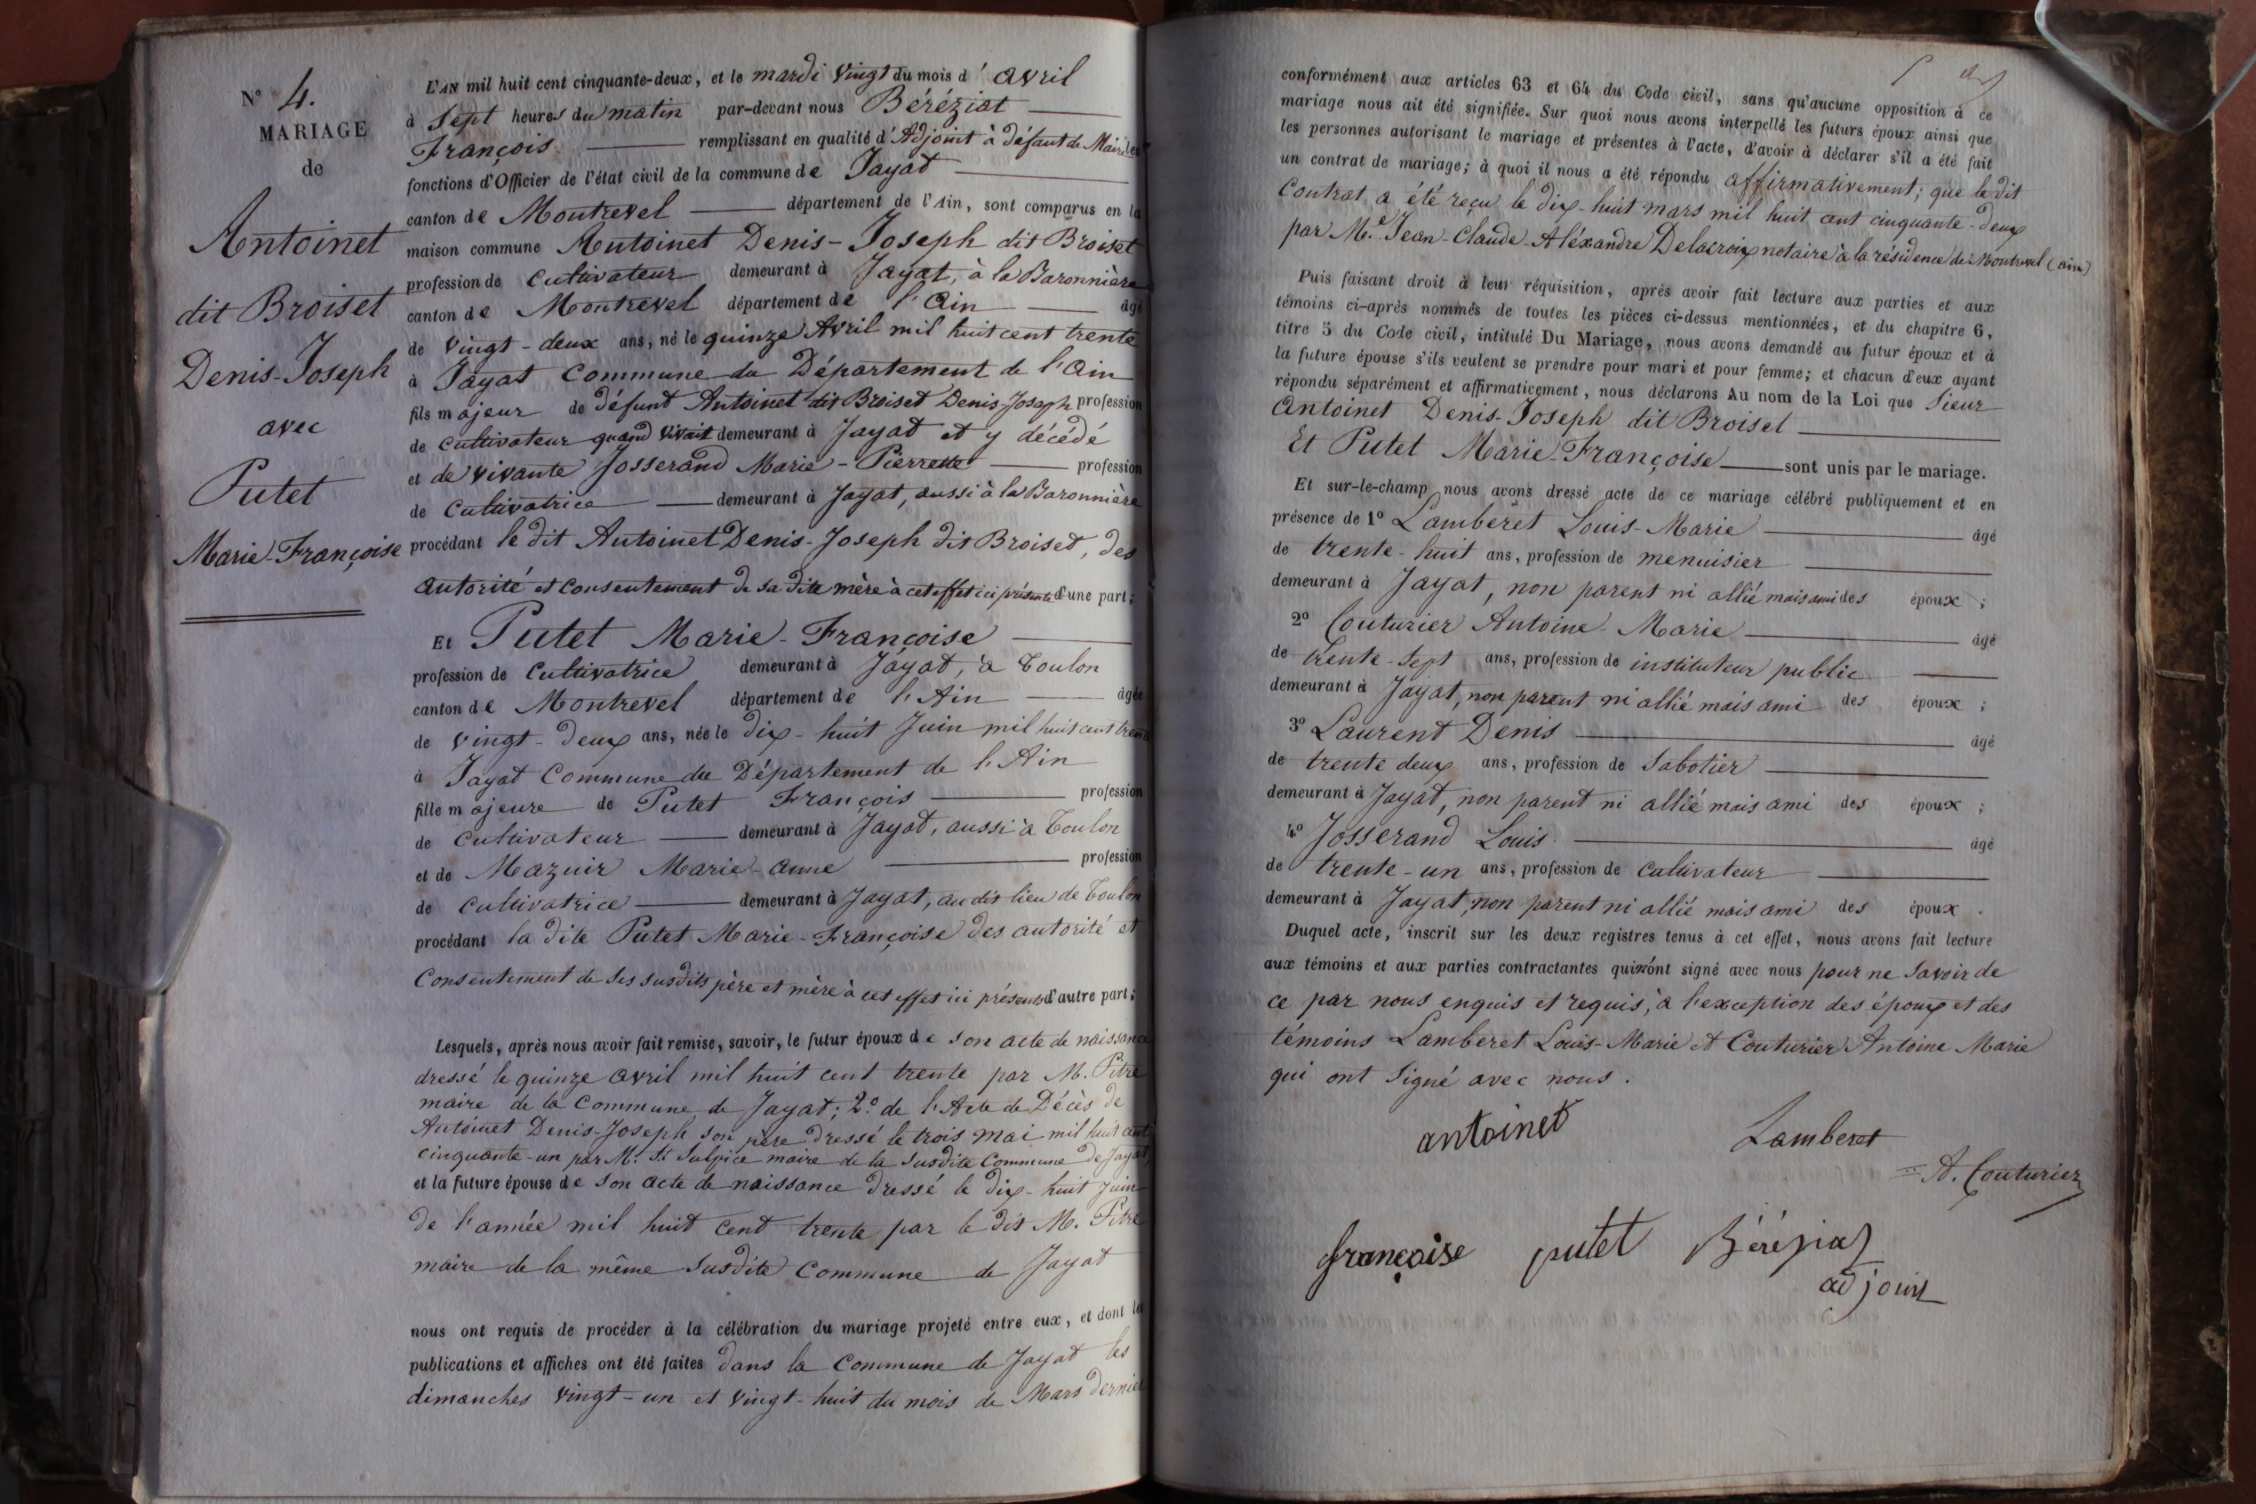 N° 4.
MARIAGE
de
Antoinet
dit Broiset
Denis-Joseph
avec
Putet
Marie-Françoise
L'AN mil huit cent cinquante-deux, et le mardi vingt du mois d'avril
à sept heures du matin par-devant nous Béréziat
François remplissant en qualité d'Adjoint à défaut de Maire les
fonctions d'Officier de l'état civil de la commune de Jayat
canton de Montrevel département de l'Ain, sont comparus en la
maison commune Antoinet Denis-Joseph dit Broiset
profession de cultivateur demeurant à Jayat, à la Baronnière
canton de Montrevel département de l'Ain âgé
de vingt-deux ans, né le quinze Avril mil huit cent trente
à Jayat Commune du Département de l'Ain
fils majeur de défunt Antoinet dit Broiset Denis-Joseph profession
de cultivateur quand vivait demeurant à Jayat et y décédé
et de vivante Josserand Marie-Pierrette profession
de cultivatrice demeurant à Jayat, aussi à la Baronnière
procédant le dit Antoinet Denis-Joseph dit Broiset, des
autorité et consentement de sa dite mère à cet effet ici présente d'une part;
Et Putet Marie-Françoise
profession de cultivatrice demeurant à Jayat, à Toulon
canton de Montrevel département de l'Ain âgée
de vingt-deux ans, née le dix-huit Juin mil huit cent trente
à Jayat Commune du Département de l'Ain
fille majeure de Putet François profession
de cultivateur demeurant à Jayat, aussi à Toulon
et de Mazuir Marie-anne profession
de cultivatrice demeurant à Jayat, au dit lieu de Toulon
procédant la dite Putet Marie-Françoise des autorité et
consentement de ses susdits père et mère à cet effet ici présents d'autre part;
Lesquels, après nous avoir fait remise, savoir, le futur époux de son acte de naissance
dressé le quinze avril mil huit cent trente par M. Pitre
maire de la Commune de Jayat; 2° de l'Acte de Décès de
Antoinet Denis-Joseph son père dressé le trois mai mil huit cent
cinquante-un par M. St Sulpice maire de la susdite Commune de Jayat,
et la future épouse de son acte de naissance dressé le dix-huit juin
de l'année mil huit cent trente par le dit M. Pitre
maire de la même susdite Commune de Jayat
nous ont requis de procéder à la célébration du mariage projeté entre eux, et dont les
publications et affiches ont été faites dans la Commune de Jayat les
dimanches vingt-un et vingt-huit du mois de Mars dernier
conformément aux articles 63 et 64 du Code civil, sans qu'aucune opposition à ce
mariage nous ait été signifiée. Sur quoi nous avons interpellé les futurs époux ainsi que
les personnes autorisant le mariage et présentes à l'acte, d'avoir à déclarer s'il a été fait
un contrat de mariage; à quoi il nous a été répondu affirmativement; que le dit
Contrat a été reçu le dix-huit mars mil huit cent cinquante-deux
par Me Jean-Claude-Aléxandre Delacroix notaire à la résidence de Montrevel (ain)
Puis faisant droit à leur réquisition, après avoir fait lecture aux parties et aux
témoins ci-après nommés de toutes les pièces ci-dessus mentionnées, et du chapitre 6,
titre 5 du Code civil, intitulé Du Mariage, nous avons demandé au futur époux et à
la future épouse s'ils veulent se prendre pour mari et pour femme; et chacun d'eux ayant
répondu séparément et affirmativement, nous déclarons Au nom de la Loi que Sieur
Antoinet Denis-Joseph dit Broiset
Et Putet Marie-Françoise sont unis par le mariage.
Et sur-le-champ nous avons dressé acte de ce mariage célébré publiquement et en
présence de 1° Lamberet Louis-Marie âgé
de trente-huit ans, profession de menuisier
demeurant à Jayat, non parent ni allié mais ami des époux;
2° Couturier Antoine-Marie âgé
de trente-sept ans, profession de instituteur public
demeurant à Jayat, non parent ni allié mais ami des époux;
3° Laurent Denis âgé
de trente deux ans, profession de Sabotier
demeurant à Jayat, non parent ni allié mais ami des époux;
4° Josserand Louis âgé
de trente-un ans, profession de cultivateur
demeurant à Jayat, non parent ni allié mais ami des époux.
Duquel acte, inscrit sur les deux registres tenus à cet effet, nous avons fait lecture
aux témoins et aux parties contractantes qui n'ont signé avec nous pour ne savoir de
ce par nous enquis et requis, à l'exception des époux et des
témoins Lamberet Louis-Marie et Couturier Antoine Marie
qui ont signé avec nous.
antoinet Lamberet
A. Couturier
françoise putet Béréziat
adjoint